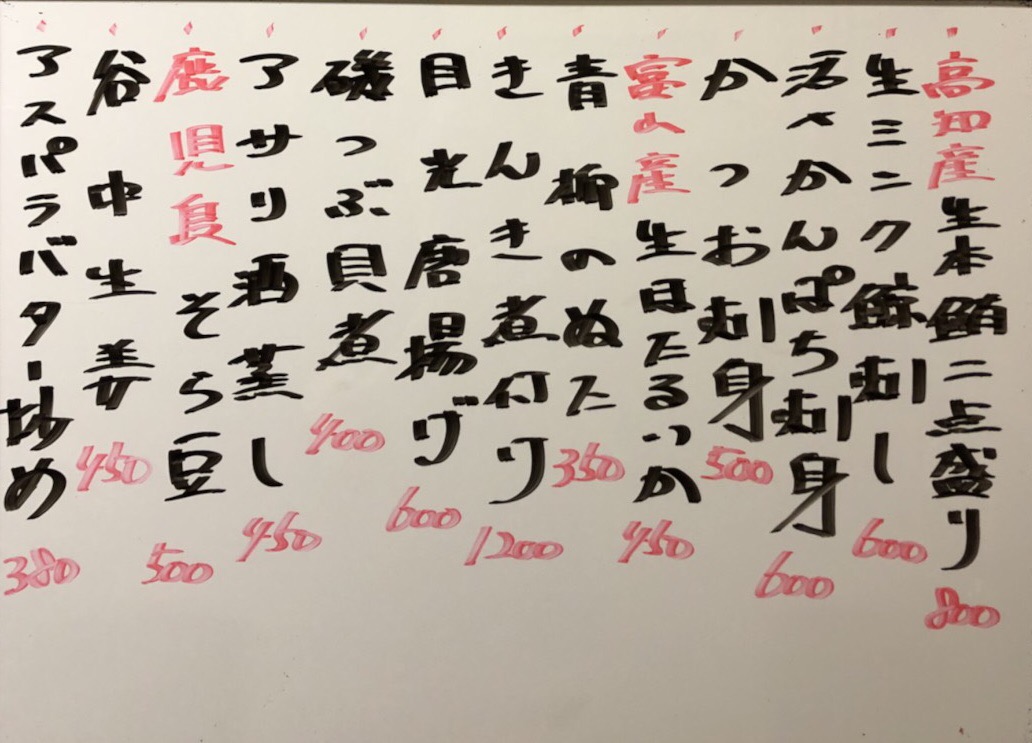 高知産生本鮪二点盛り 800
生ミンク鯨刺し 600
活〆かんぱち刺身 600
かつお刺身 500
富山産生ほたるいか 450
青柳のぬた 350
きんき煮付け 1200
目光唐揚げ 600
磯つぶ貝煮 400
アサリ酒蒸し 450
鹿児島そら豆 500
谷中生姜 450
アスパラバター炒め 380